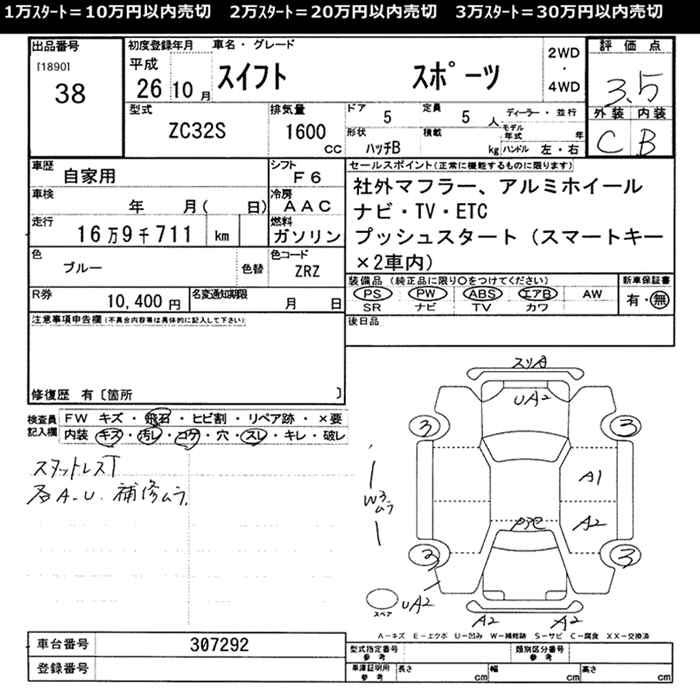 1万スタート＝10万円以内売切　2万スタート＝20万円以内売切　3万スタート＝30万円以内売切
出品番号
[1890]
38
初度登録年月
平成
26年10月
車名・グレード
スイフト　スポーツ
2WD
・
4WD
評価点
3.5
外装 内装
C B
型式
ZC32S
排気量
1600
CC
ドア
5
定員
5人
ディーラー・並行
形状
ハッチB
積載
kg
モデル年式　年
ハンドル 左・右
車歴
自家用
シフト
F6
車検
年　月(　日)
冷房
AAC
走行
16万9千711 km
燃料
ガソリン
色
ブルー
色替
色コード
ZRZ
R券
10,400円
名変通知期限
月　日
セールスポイント(正常に機能するものに限ります)
社外マフラー、アルミホイール
ナビ・TV・ETC
プッシュスタート（スマートキー
×2車内）
装備品 (純正品に限り○をつけてください)
PS PW ABS エアB AW
SR ナビ TV カワ
新車保証書
有・無
後日品
注意事項申告欄(不具合内容等は具体的に記入して下さい)
修復歴 有〔箇所　〕
検査員
記入欄
FW キズ・飛石・ヒビ割・リペア跡・×要
内装 キズ・汚レ・コゲ・穴・スレ・キレ・破レ
スタットレスT
各A-U. 補修ムラ.
スリA
UA2
3
3
A1
W3
ムラ
A2
3
3
スペア
UA2
A2
A2
A-キズ E-エクボ U-凹み W-補修跡 S-サビ C-腐食 XX-交換済
車台番号
307292
登録番号
型式指定番号
参考
類別区分番号
参考
車庫証明用
参考
長さ
cm
幅
cm
高さ
cm